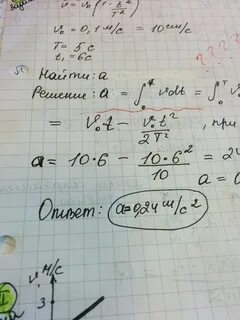 v = v₀(1 - t²/T²)
v₀ = 0,1 м/с = 10 см/с
T = 5 с
t₁ = 6с
Найти: a
Решение: a = ∫₀ᵗ v dt = ∫₀ᵗ v₀
= v₀t - v₀t²/2T², при
a = 10·6 - 10·6²/10 = 24
a =
Ответ: a=0,24 м/с²
v м/с
3